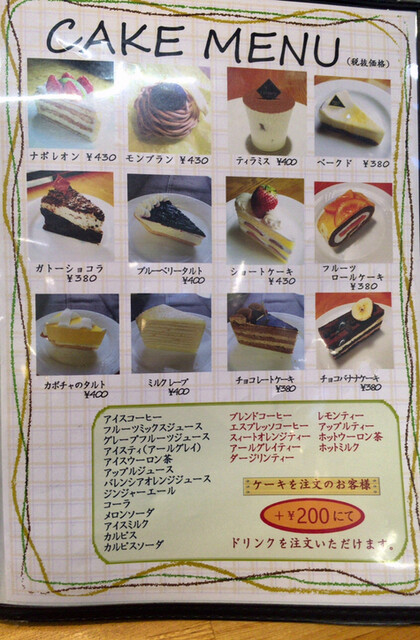 CAKE MENU
(税抜価格)
ナポレオン ¥430
モンブラン ¥430
ティラミス ¥400
ベークド ¥380
ガトーショコラ
¥380
ブルーベリータルト
¥400
ショートケーキ
¥430
フルーツ
ロールケーキ
¥380
カボチャのタルト
¥400
ミルクレープ
¥400
チョコレートケーキ
¥380
チョコバナナケーキ
¥380
アイスコーヒー
フルーツミックスジュース
グレープフルーツジュース
アイスティ(アールグレイ)
アイスウーロン茶
アップルジュース
バレンシアオレンジジュース
ジンジャーエール
コーラ
メロンソーダ
アイスミルク
カルピス
カルピスソーダ
ブレンドコーヒー
エスプレッソコーヒー
スィートオレンジティー
アールグレイティー
ダージリンティー
レモンティー
アップルティー
ホットウーロン茶
ホットミルク
ケーキを注文のお客様
+¥200にて
ドリンクを注文いただけます。